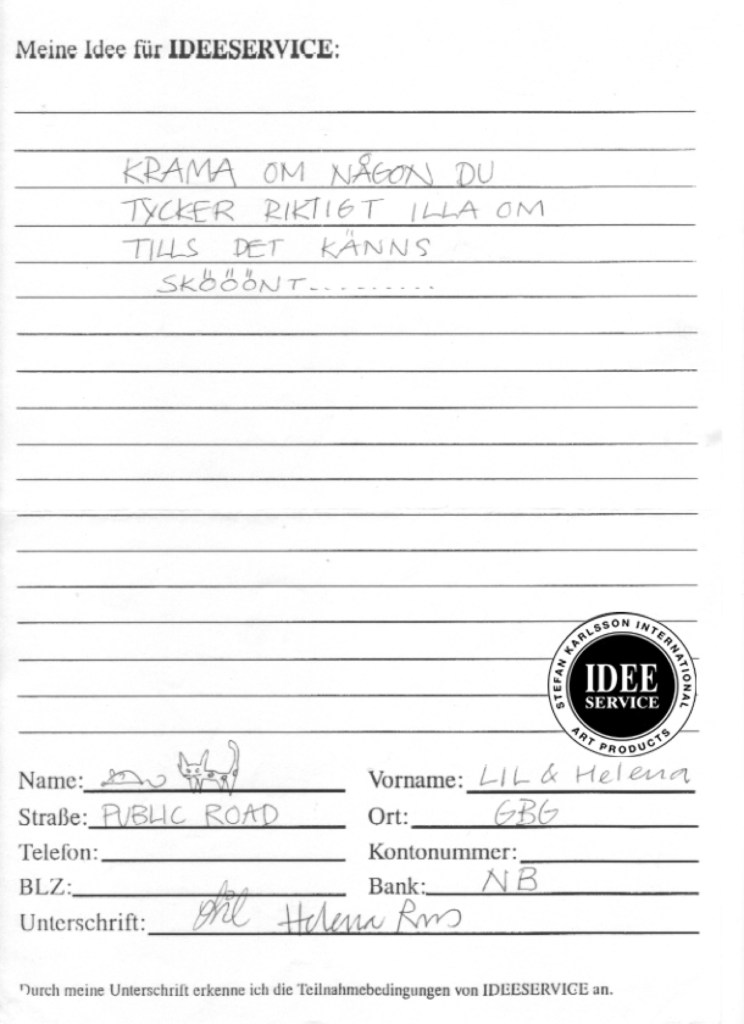 Meine Idee für IDEESERVICE:
KRAMA OM NÅGON DU
TYCKER RIKTIGT ILLA OM
TILLS DET KÄNNS
SKÖÖÖNT.........
STEFAN KARLSSON INTERNATIONAL
IDEE
SERVICE
ART PRODUCTS
Name: Vorname: LIL & Helena
Straße: PUBLIC ROAD Ort: GBG
Telefon: Kontonummer:
BLZ: Bank: NB
Unterschrift: Helena
Durch meine Unterschrift erkenne ich die Teilnahmebedingungen von IDEESERVICE an.